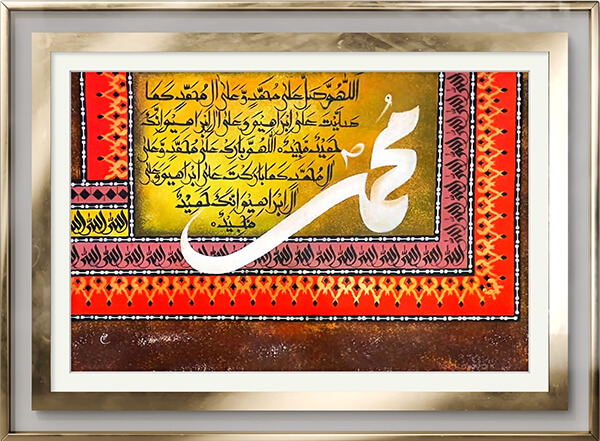 اللهم صل على محمد وعلى ال محمد كما
صليت على ابراهيم وعلى ال ابراهيم انك
حميد مجيد ه اللهم بارك على محمد وعلى
ال محمد كما باركت على ابراهيم وعلى
ال ابراهيم انك حميد
مجيد ه
محمد